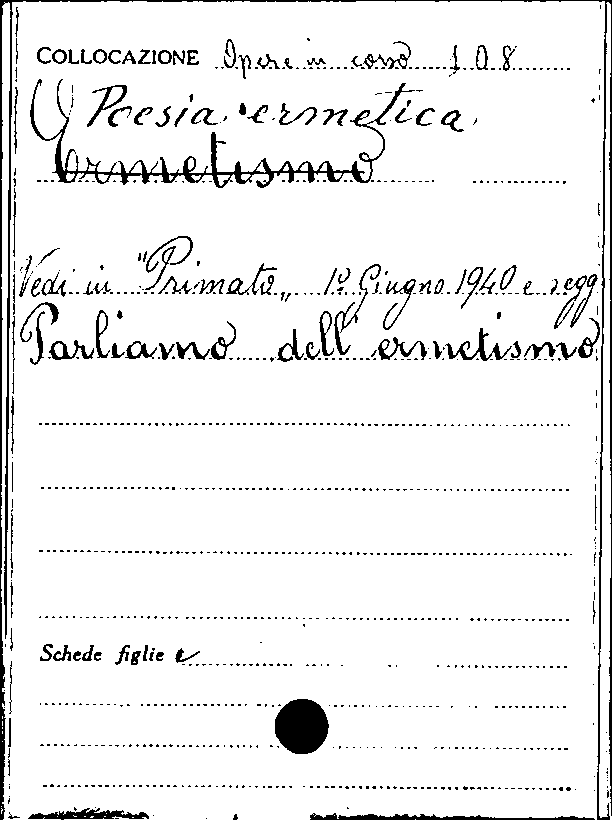 COLLOCAZIONE Opere in corso 108
Poesia ermetica
Ermetismo
Vedi in "Primato„ 1º Giugno 1940 e segg
Parliamo dell'ermetismo
Schede figlie